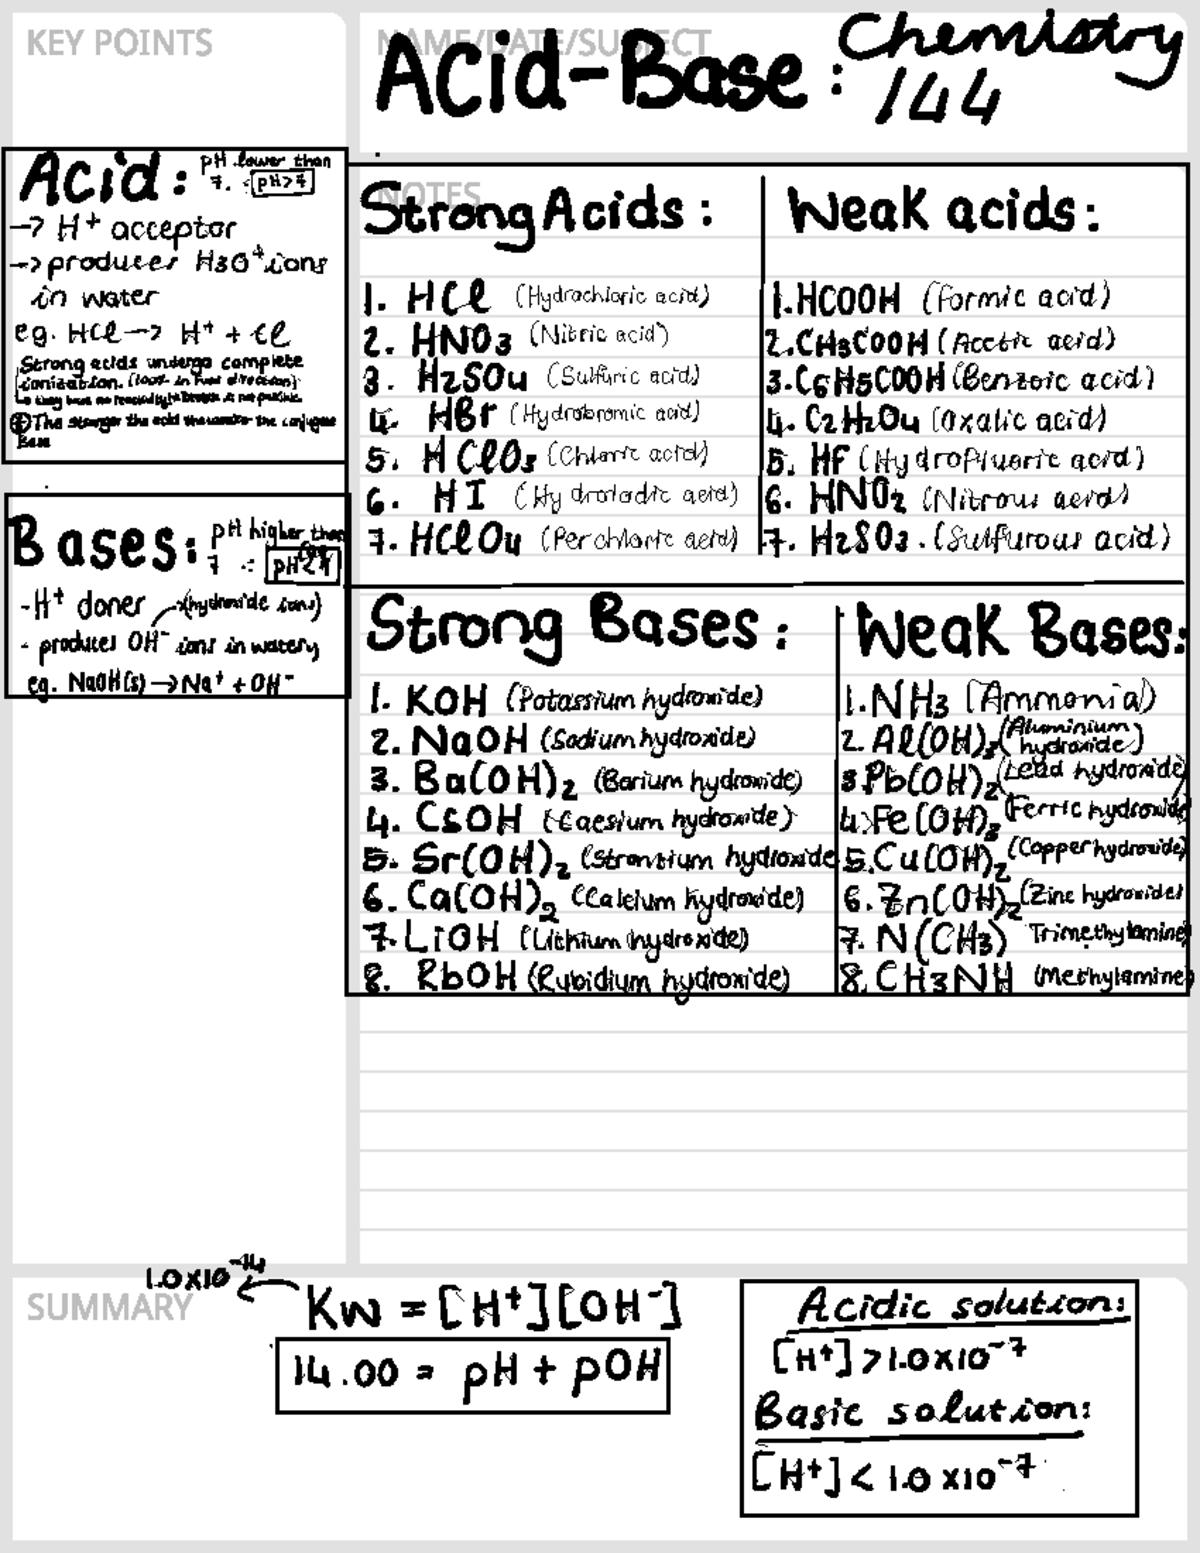 KEY POINTS
NAME/DATE/SUBJECT
Acid-Base: Chemistry 144
Acid: pH lower than
7. : pH>7
→ H+ acceptor
→ produces H3O+ ions
in water
eg. HCl → H+ + Cl
Strong acids undergo complete
ionization. (100% in fwd direction)
⊕ The stronger the acid the weaker the conjugate
Base
Bases: pH higher than
7 : pH<7
- H+ doner →(hydroxide ions)
- produces OH- ions in watery
eg. NaOH(s) → Na+ + OH-
NOTES
Strong Acids:
1. HCl (Hydrochloric acid)
2. HNO3 (Nitric acid)
3. H2SO4 (Sulfuric acid)
4. HBr (Hydrobromic acid)
5. HClO3 (Chloric acid)
6. HI (Hydroiodic acid)
7. HClO4 (Perchloric acid)
Weak acids:
1. HCOOH (Formic acid)
2. CH3COOH (Acetic acid)
3. C6H5COOH (Benzoic acid)
4. C2H2O4 (oxalic acid)
5. HF (Hydrofluoric acid)
6. HNO2 (Nitrous acid)
7. H2SO3. (Sulfurous acid)
Strong Bases:
1. KOH (Potassium hydroxide)
2. NaOH (Sodium hydroxide)
3. Ba(OH)2 (Barium hydroxide)
4. CsOH (Caesium hydroxide)
5. Sr(OH)2 (Strontium hydroxide
6. Ca(OH)2 (Calcium hydroxide)
7. LiOH (Lithium hydroxide)
8. RbOH (Rubidium hydroxide)
Weak Bases:
1. NH3 (Ammonia)
2. Al(OH)3 (Aluminium hydroxide)
3. Pb(OH)2 (Lead hydroxide)
4. Fe(OH)3 (Ferric hydroxide
5. Cu(OH)2 (Copper hydroxide)
6. Zn(OH)2 (Zinc hydroxide)
7. N(CH3) Trimethylamine)
8. CH3NH (Methylamine)
SUMMARY
1.0x10-14
Kw = [H+][OH-]
14.00 = pH + pOH
Acidic solution:
[H+] > 1.0x10-7
Basic solution:
[H+] < 1.0x10-7